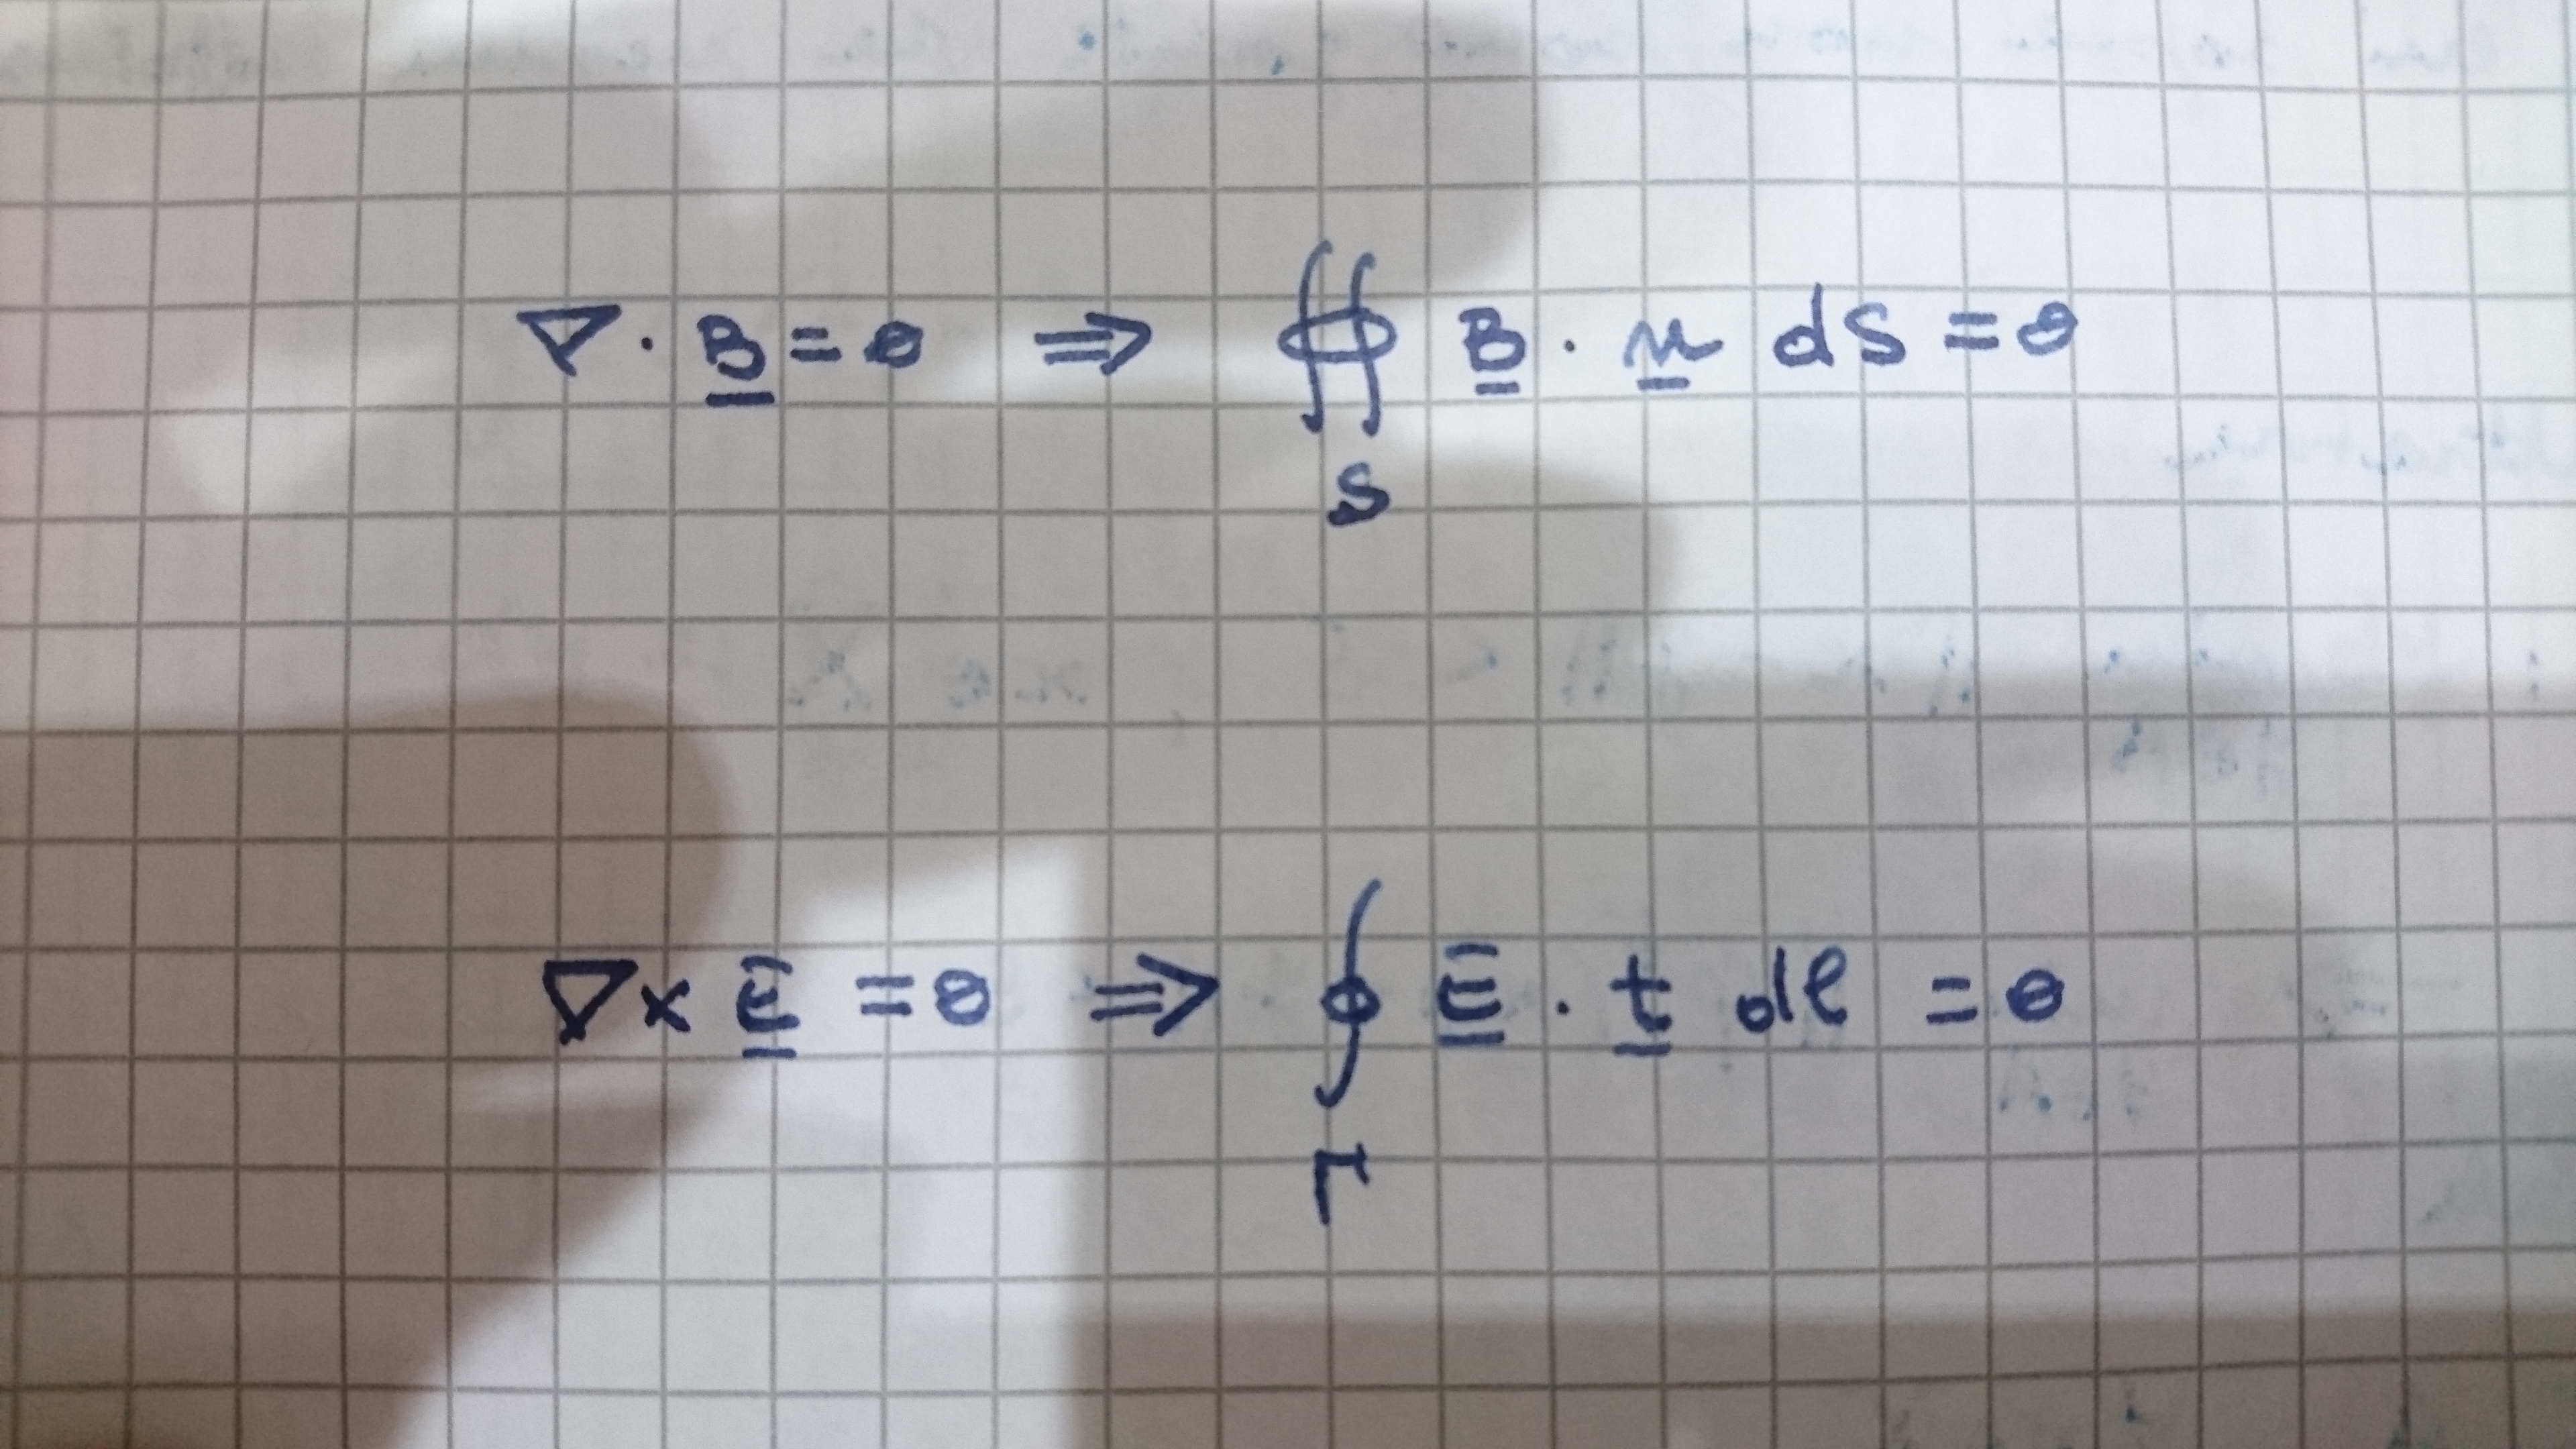 ∇ · B̲ = 0 ⇒ ∯ B̲ · n̲ dS = 0
S
∇ × E̲ = 0 ⇒ ∮ E̲ · t̲ dℓ = 0
Γ